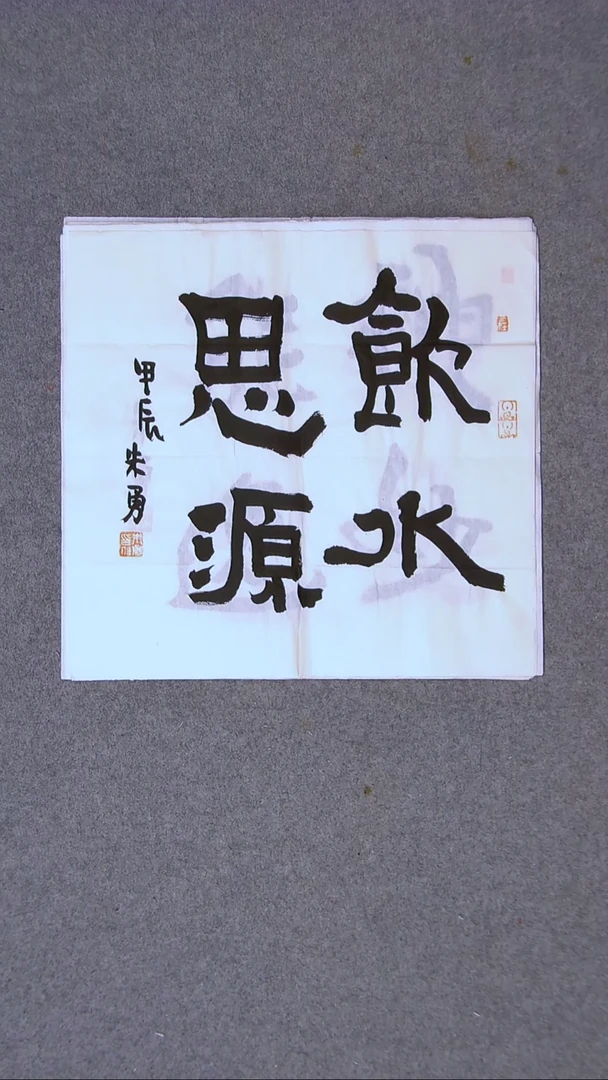 飲水
思源
甲辰朱勇